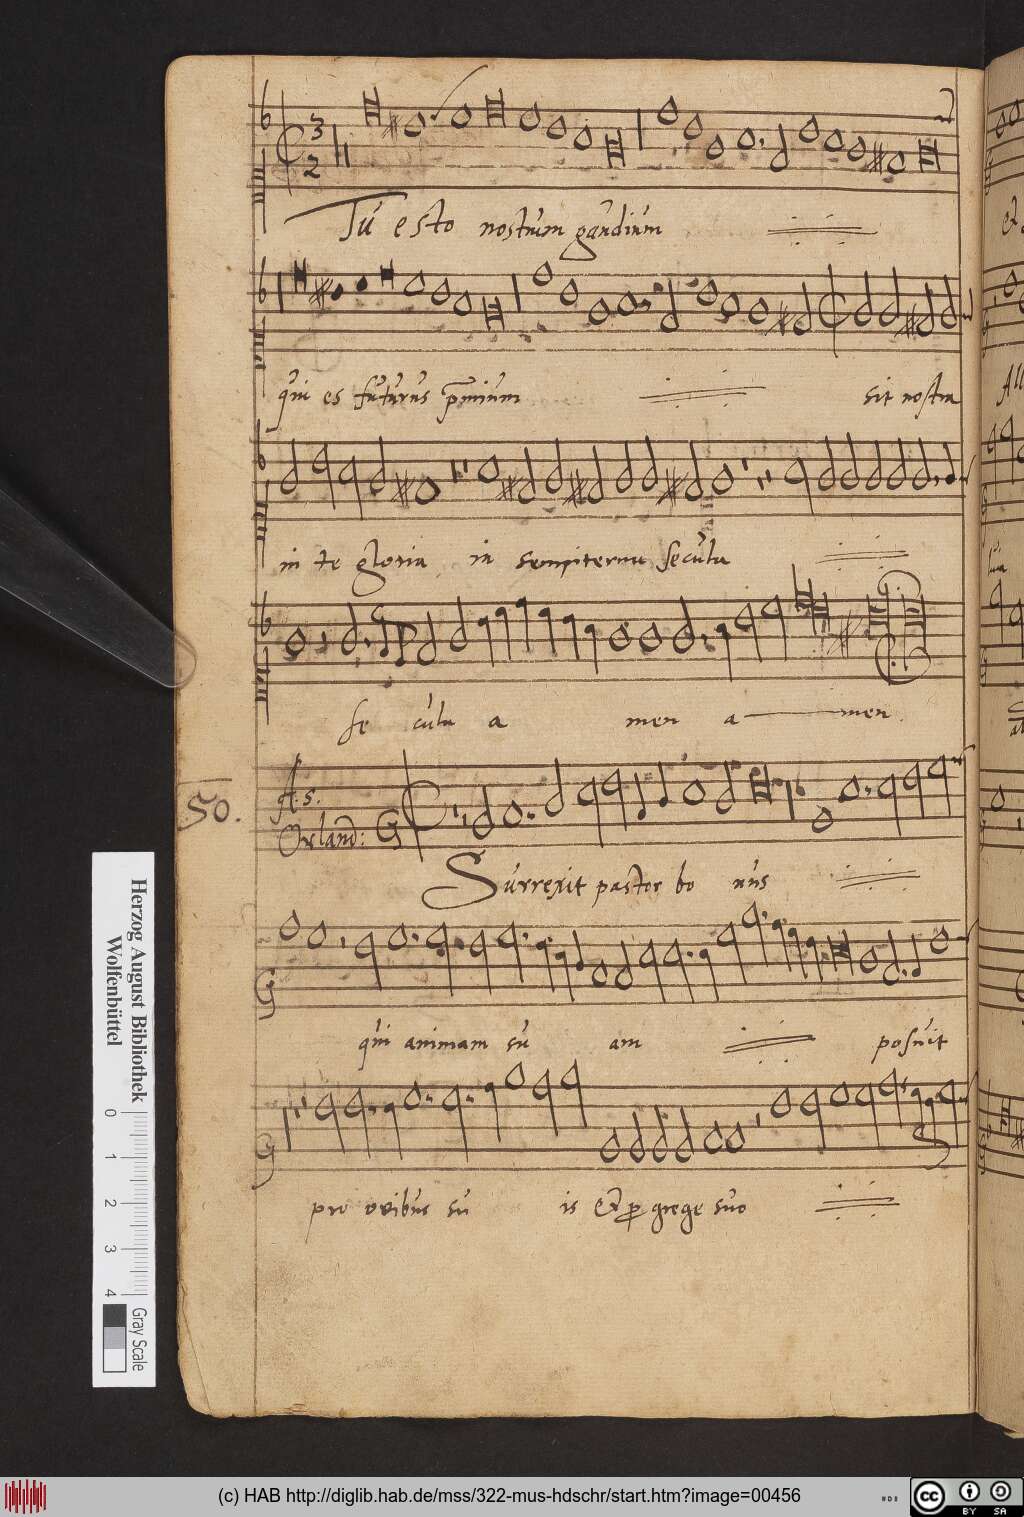 3
2
Tu esto nostrum gaudium
qui es futurus p̄mium sit nostra
in te gloria in sempiterna secula
se cula a men a men
50.
A. 5.
Orland:
Surrexit pastor bo nus
qui animam su am posuit
pro ovibus su is et ꝓ grege suo
Herzog August Bibliothek
Wolfenbüttel
0 1 2 3 4
Gray Scale
(c) HAB http://diglib.hab.de/mss/322-mus-hdschr/start.htm?image=00456
cc BY SA